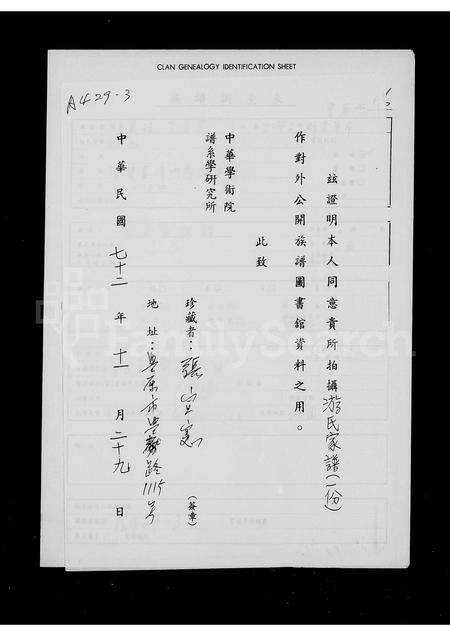 CLAN GENEALOGY IDENTIFICATION SHEET
A429-3
茲證明本人同意貴所拍攝游氏家譜(一份)
作對外公開族譜圖書館資料之用。
此致
中華學術院
譜系學研究所
珍藏者:張
(簽章)
地址:豐原市豐 路1115号
中華民國七十二年十一月二十九日
FamilySearch